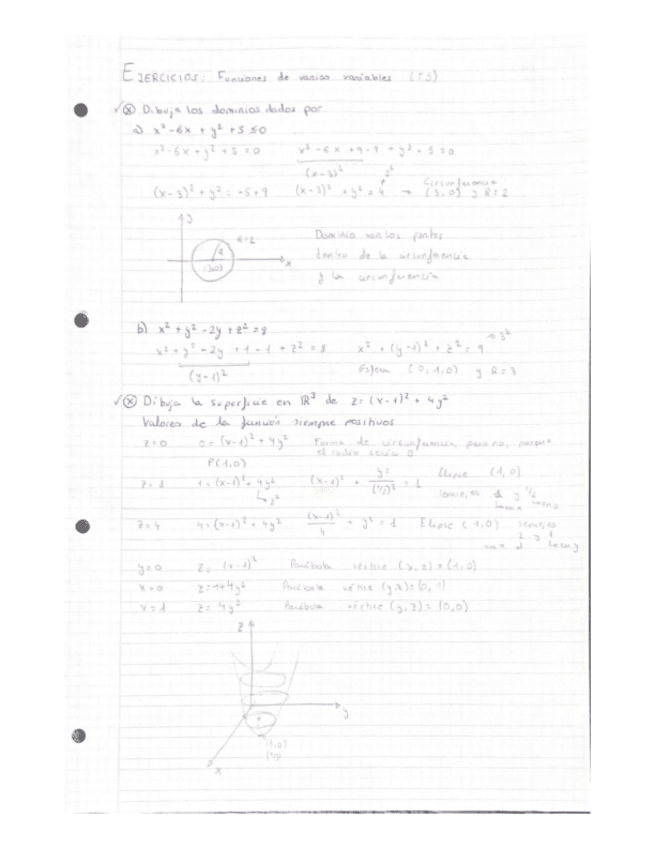 EJERCICIOS: Funciones de varias variables (T5)
✓⊗ Dibuja los dominios dados por
a) x² - 6x + y² + 5 ≤ 0
x² - 6x + y² + 5 = 0   x² - 6x + 9 - 9 + y² + 5 = 0
(x-3)²   2²
(x-3)² + y² = -5 + 9   (x-3)² + y² = 4 → Circunferencia (3,0) y R = 2
y
R=2
R
(3,0)
x
Dominio son los puntos
dentro de la circunferencia
y la circunferencia
b) x² + y² - 2y + z² = 8
x² + y² - 2y + 1 - 1 + z² = 8   x² + (y-1)² + z² = 9 → 3²
(y-1)²   Esfera (0,1,0) y R = 3
✓⊗ Dibuja la superficie en ℝ³ de z = (x-1)² + 4y²
Valores de la función siempre positivos
z=0   0 = (x-1)² + 4y²   Forma de circunferencia, pero no, porque
el radio sería 0
P(1,0)
z=1   1 = (x-1)² + 4y²   (x-1)² + y²/(1/2)² = 1   Elipse (1,0)
2²   1 y 1/2
z=4   4 = (x-1)² + 4y²   (x-1)²/4 + y² = 1   Elipse (1,0)
2 y 1
y=0   z = (x-1)²   Parábola vértice (x,z) = (1,0)
x=0   z = 1+4y²   Parábola vértice (y,z) = (0,1)
x=1   z = 4y²   Parábola vértice (y,z) = (0,0)
z
y
(1,0)
x